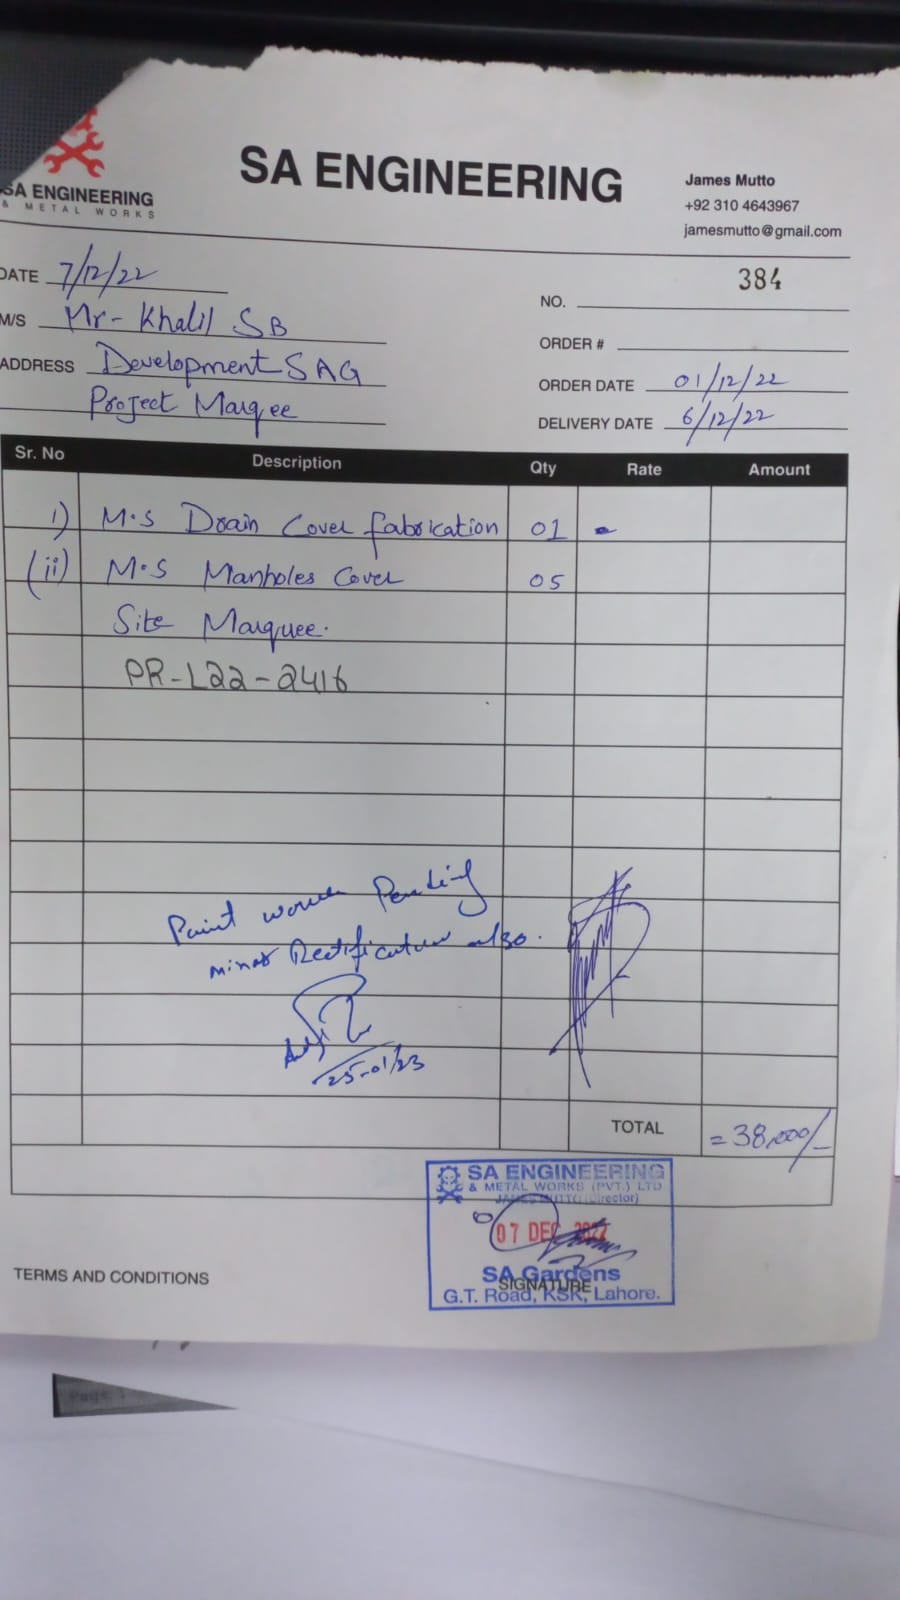 SA ENGINEERING
& METAL WORKS
SA ENGINEERING
James Mutto
+92 310 4643967
jamesmutto@gmail.com
DATE 7/12/22
M/S Mr- Khalil SB
ADDRESS Development SAG
Project Marqee
384
NO.
ORDER #
ORDER DATE 01/12/22
DELIVERY DATE 6/12/22
Sr. No Description Qty Rate Amount
i) M.S Drain Cover fabrication 01 -
(ii) M.S Manholes Cover 05
Site Marquee.
PR-L22-2416
Paint work Pending
minor Rectification also.
25-01/23
TOTAL =38,000/-
SA ENGINEERING
& METAL WORKS (PVT.) LTD
JAMES MUTTO (Director)
07 DEC 2022
SA Gardens
SIGNATURE
G.T. Road, KSK, Lahore.
TERMS AND CONDITIONS